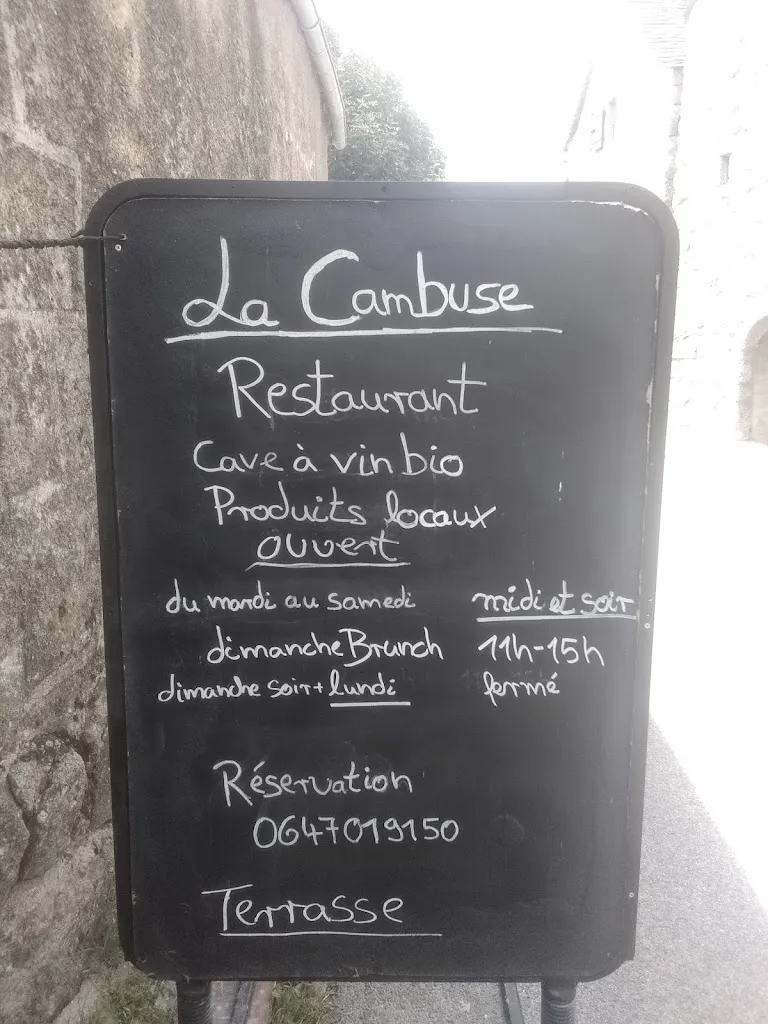 La Cambuse
Restaurant
Cave à vin bio
Produits locaux
ouvert
du mardi au samedi midi et soir
dimanche Brunch 11h-15h
dimanche soir + lundi fermé
Réservation
0647019150
Terrasse